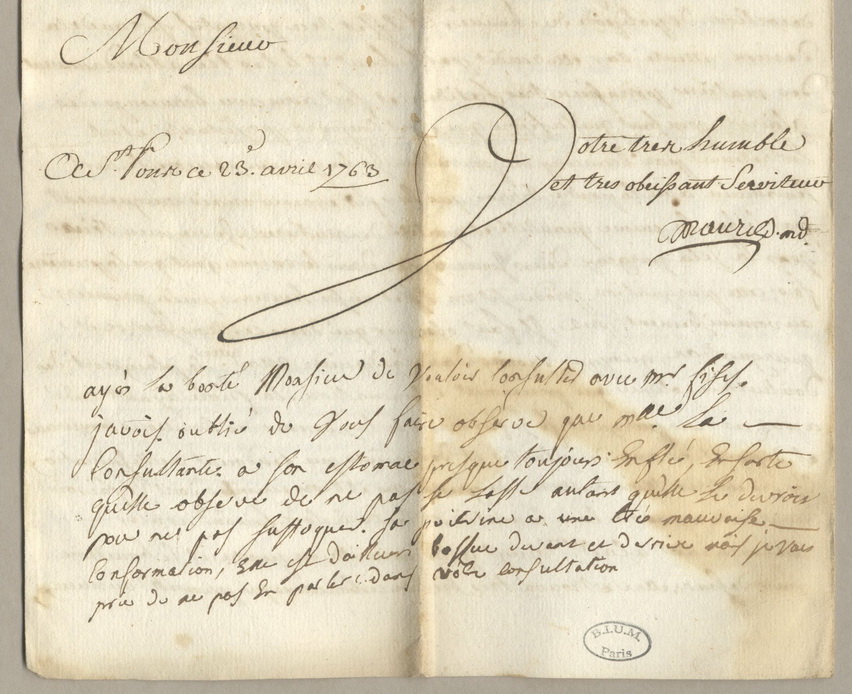 Monsieur
A St. Pons ce 23e. avril 1763
Votre tres humble
et tres obeissant Serviteur
d. md.
ayés la bonté Monsieur de Vouloir Consulter avec mr.
javois oublié de Vous faire observer que mde. La
Consultante a son estomac presque toujours Enflé, Ensorte
quelle observe de ne pas se autant quelle le devroit
pour ne pas suffoquer. Sa poitrine a une tres mauvaise
Conformation, Elle est dailleurs bossue devant et derrière mais je vous
prie de ne pas En parler dans vôtre consultation
B.I.U.M.
Paris